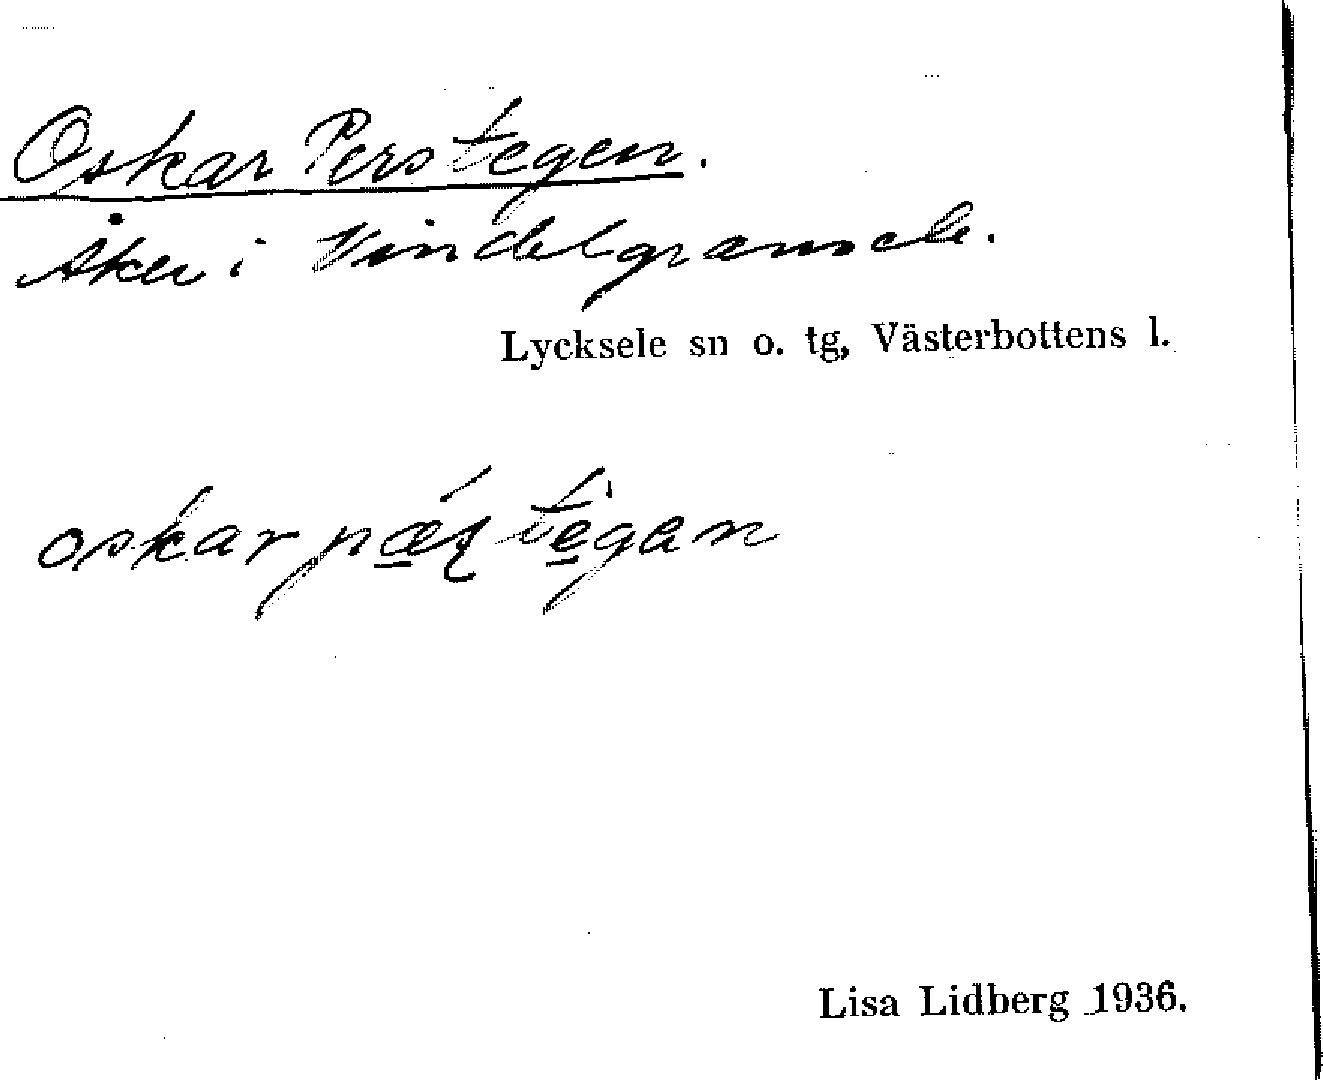 Oskar Perstegen.
Åker i Vindelgransele.
Lycksele sn o. tg, Västerbottens l.
oskar
Lisa Lidberg 1936.